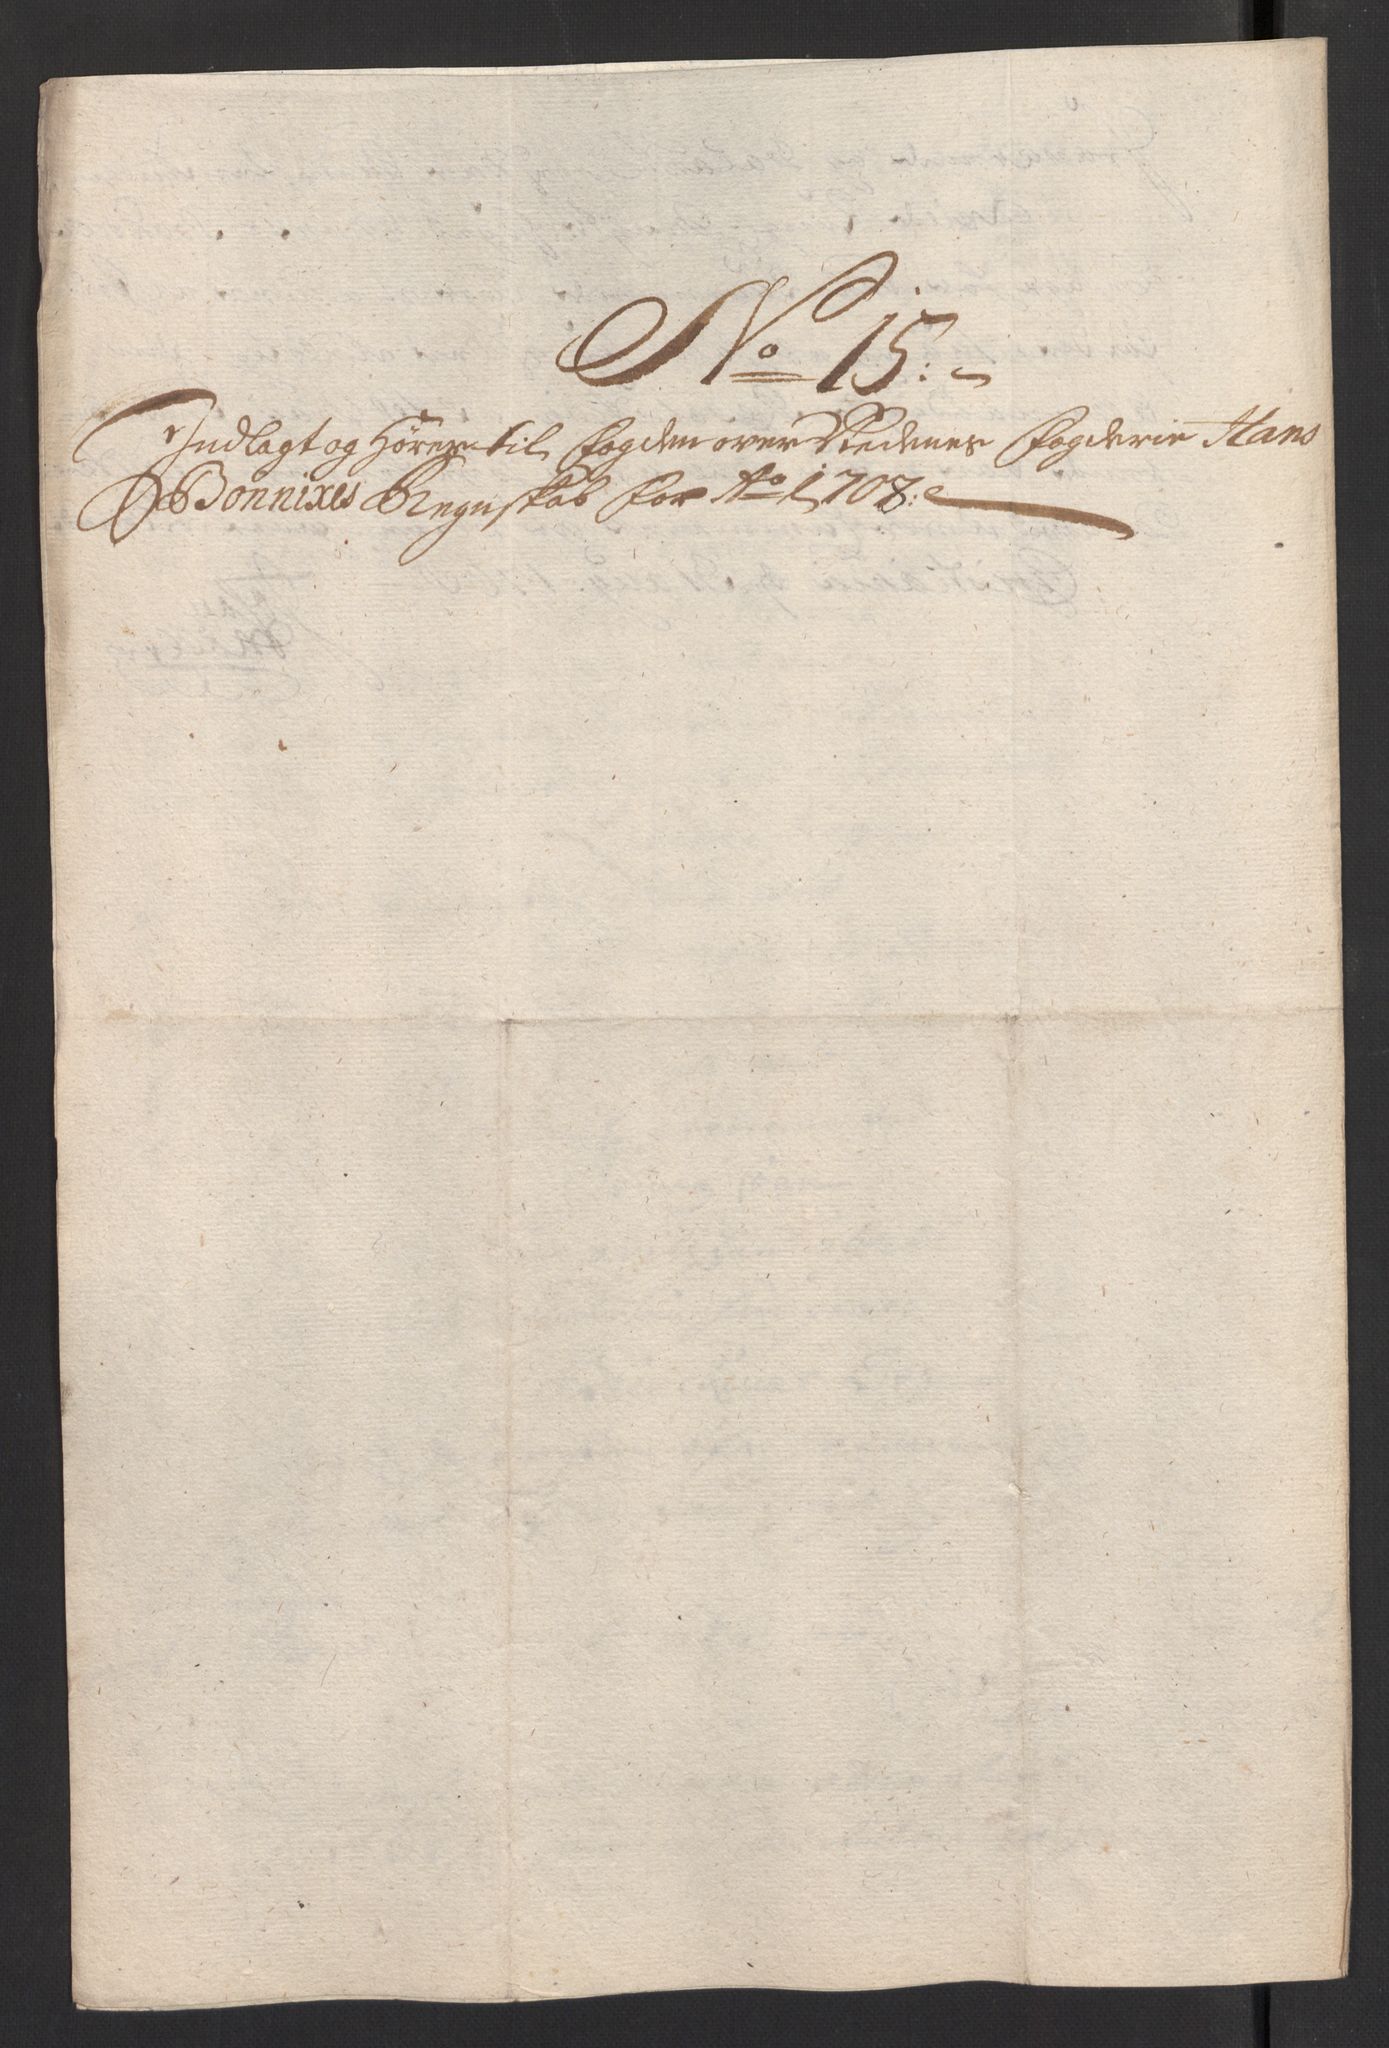 No 15:
Indlagt og Hörer til fogden over Nedenes fogderie Hans
Bonnixes Regnskab for Ao 1708: